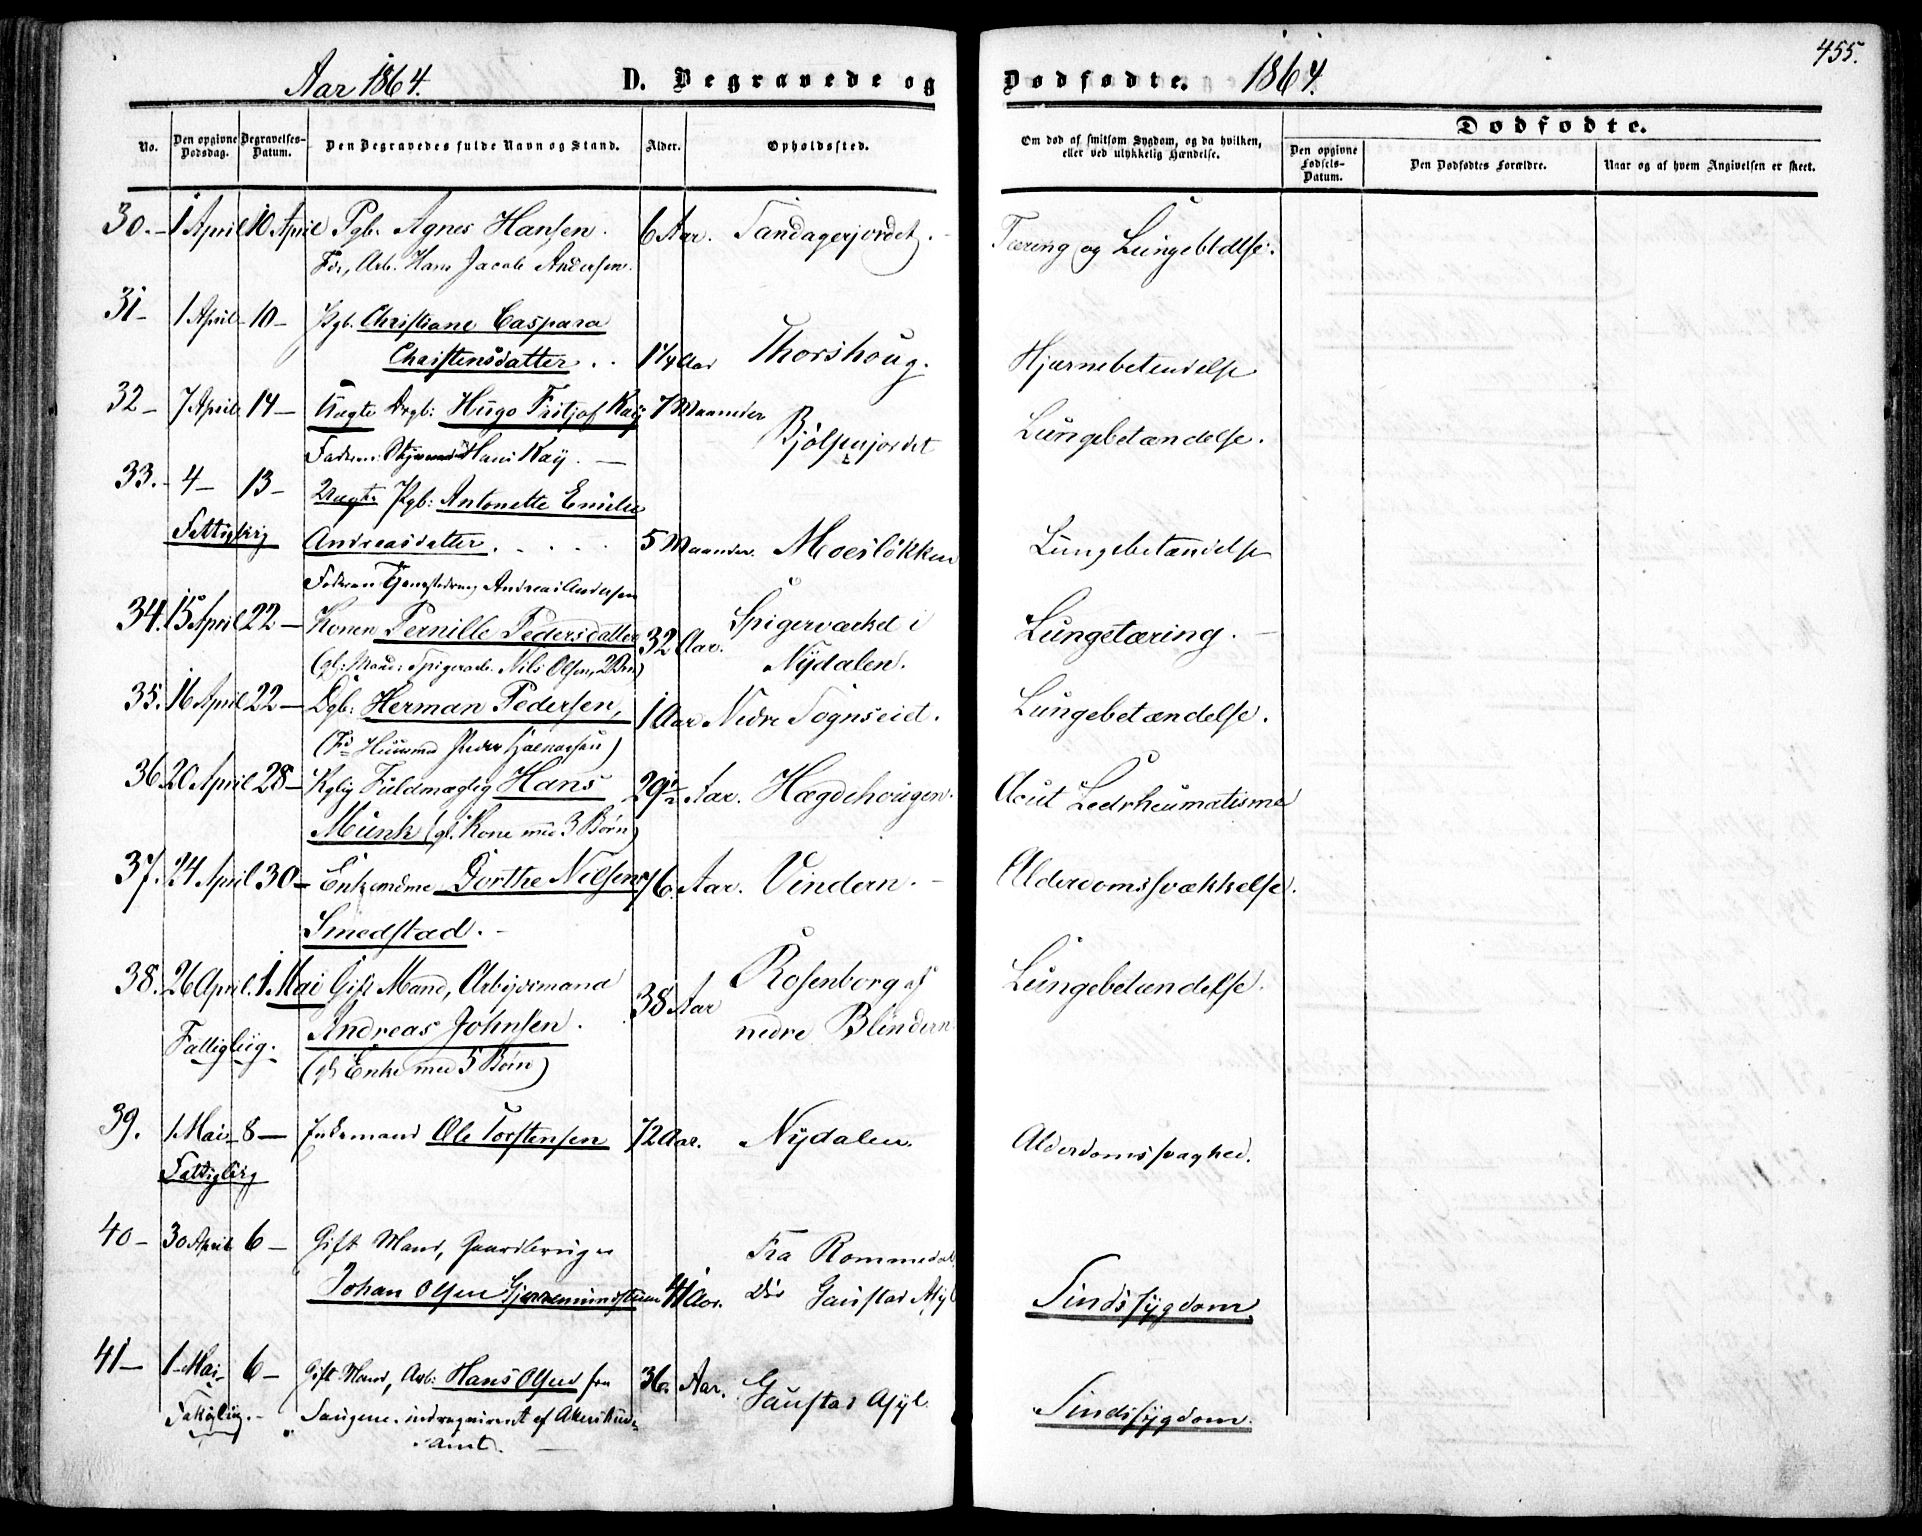 455.
Aar 1864. D. Begravede og Dødfødte. 1864.
No. Den opgivne Dødsdag. Begravelses-Datum. Den Begravedes fulde Navn og Stand. Alder. Opholdssted. Om død af smitsom Sygdom, og da hvilken, eller ved ulykkelig Hændelse. Dødfødte.
Den opgivne Fødsels-Datum. Den Dødfødtes Forældre. Naar og af hvem Angivelsen er skeet.
30. 1 April 10 April Pgb. Agnes Hansen. 6 Aar. Tandagerjordet. Tæring og Lungebldlse.
Fdr, Arb. Hans Jacob Andersen.
31- 1 April 10- Pgb. Christiane Caspara
Christensdatter . . 1 1/4 Aar Thorshoug. Hjærnebetendelse
32- 7 April 14- Uægte Drgb: Hugo Fritjof Kaÿ 7 Maaneder Bjölsenjordet Lungebetændelse.
Faderen: Hans Kaÿ.
33.- 4- 13- Uægte Pgb: Antonette Emilie
Fattiglig Andreasdatter . . . . 5 Maaneder. Moeslökken Lungebetændelse
Faderen Andreas Andersen
34. 15 April 22- Konen Pernille Pedersdatter 32 Aar. Spigerværket i Lungetæring.-
(gl: Mand: Spigerarb. Nils Olsen, 2 Brn) Nÿdalen.
35. 16 April 22- Dgb: Herman Pedersen, 1 Aar Nedre Sognseid. Lungebetændelse.
(Fr Huusmd Peder Haakensen)
36 20 April 28- Kglig Fuldmægtig Hans 29 1/2 Aar. Hægdehougen. Acut Ledrheumatisme
Munk (gl. Kone med 3 Børn)
37. 24 April 30- Enkemdme Dorthe Nilsen 76. Aar. Vindern.- Alderdomssvækkelse.
Smedstad.-
38. 26 April. 1. Mai Gift Mand, Arbejdsmand 38 Aar Rosenborg af Lungebetændelse.
Fattiglig. Andreas Johnsen. nedre Blindern.
(gl Enke med 5 Børn)
39. 1. Mai 8- Enkemand Ole Torstensen 72 Aar. Nÿdalen. Alderdomssvaghed.
Fattiglig
40- 30 April 6- Gift Mand, Gaardbruger Fra Rommedal,
Johan Olsen Gjermundstuen 41 Aar. Död Gaustad Asÿl Sindssÿgdom.
41- 1-Mai 6- Gift Mand, Arb: Hans Olsen fra 36. Aar. Gaustad Asÿl. Sindssÿgdom.
Fattiglig.- Saugene. indrequireret af Akershuus-
amt.